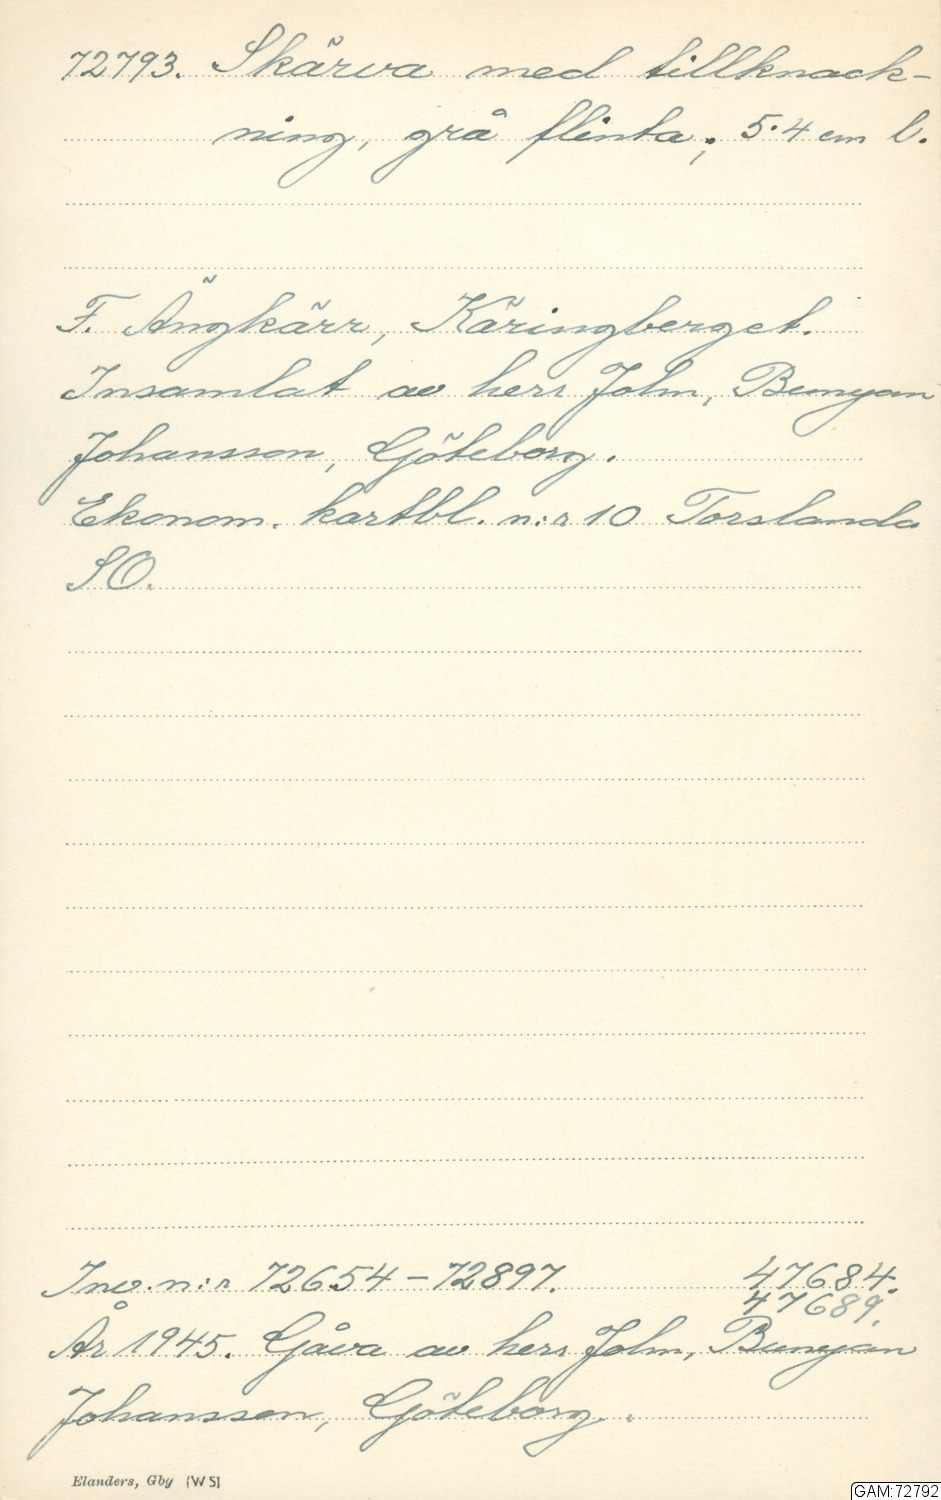 72793. Skärva med tillknack-
ning, grå flinta; 5.4 cm l.
F. Ängkärr, Käringberget.
Insamlat av herr John, Bunyan
Johansson, Göteborg.
Ekonom. kartbl. n:r 10 Torslanda
SO.
Inv. n:r 72654-72897. 47684.
47689.
År 1945. Gåva av herr John, Bunyan
Johansson, Göteborg.
Elanders, Gby (W S)
GAM:72792